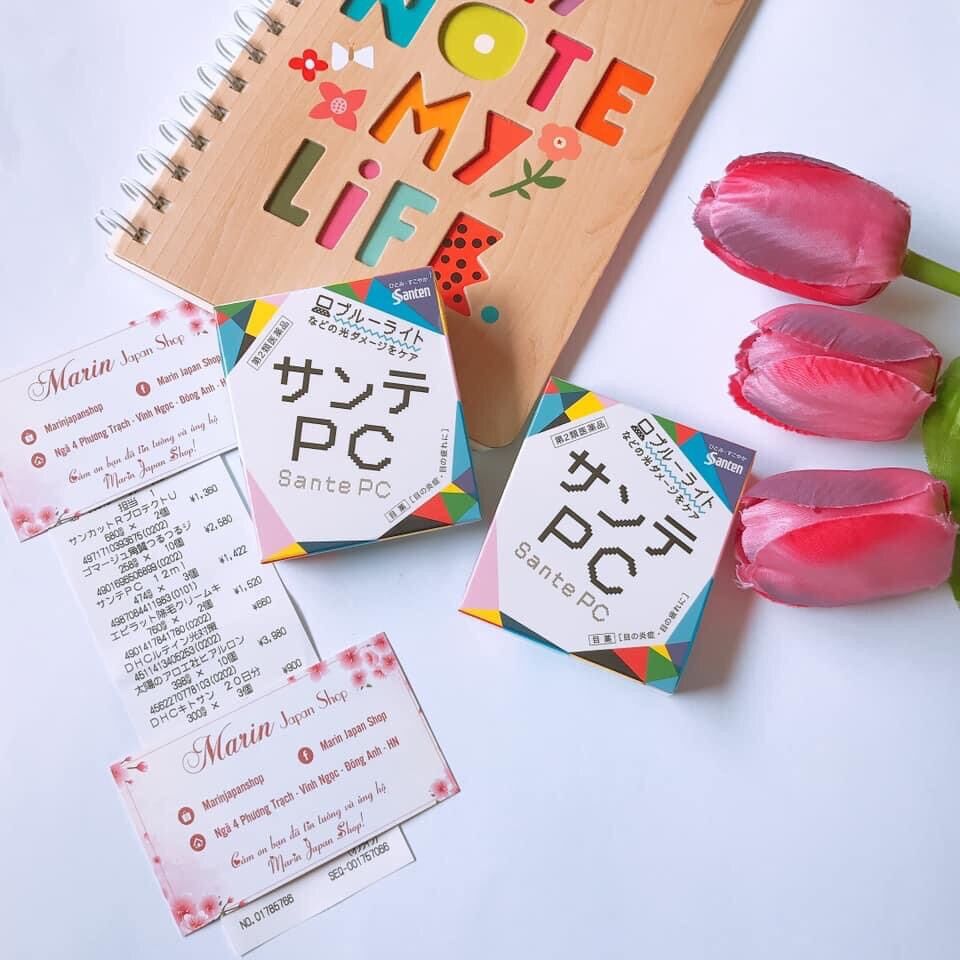 NOTE
MY
LiFE
ひとみ・すこやか
Santen
ブルーライト
などの光ダメージをケア
第2類医薬品
サンテ
PC
Sante PC
目薬 [目の炎症・目の疲れに]
ひとみ・すこやか
Santen
ブルーライト
などの光ダメージをケア
第2類医薬品
サンテ
PC
Sante PC
目薬 [目の炎症・目の疲れに]
Marin Japan Shop
Marin Japan Shop
Marinjapanshop
Ngã 4 Phương Trạch - Vĩnh Ngọc - Đông Anh - H
Cảm ơn bạn đã tin tưởng và ủng hộ
Marin Japan Shop!
担当 1
サンカットRプロテクトU ¥1,360
680@ × 2個
4971710393675(0202)
ゴマージュ角質つるつるジ ¥2,580
258@ × 10個
4901696506899(0202)
サンテPC 12ml ¥1,422
474@ × 3個
4987084411983(0101)
エピラット除毛クリームキ ¥1,520
760@ × 2個
4901417841780(0202)
DHCルテイン光対策 ¥560
4511413405253(0202)
太陽のアロエ社ヒアルロン ¥3,980
398@ × 10個
4562270778103(0202)
DHCキトサン 20日分 ¥900
300@ × 3個
Marin Japan Shop
Marin Japan Shop
Marinjapanshop
Ngã 4 Phương Trạch - Vĩnh Ngọc - Đông Anh - HN
Cảm ơn bạn đã tin tưởng và ủng hộ
Marin Japan Shop!
SEQ-001757066
NO.01785766